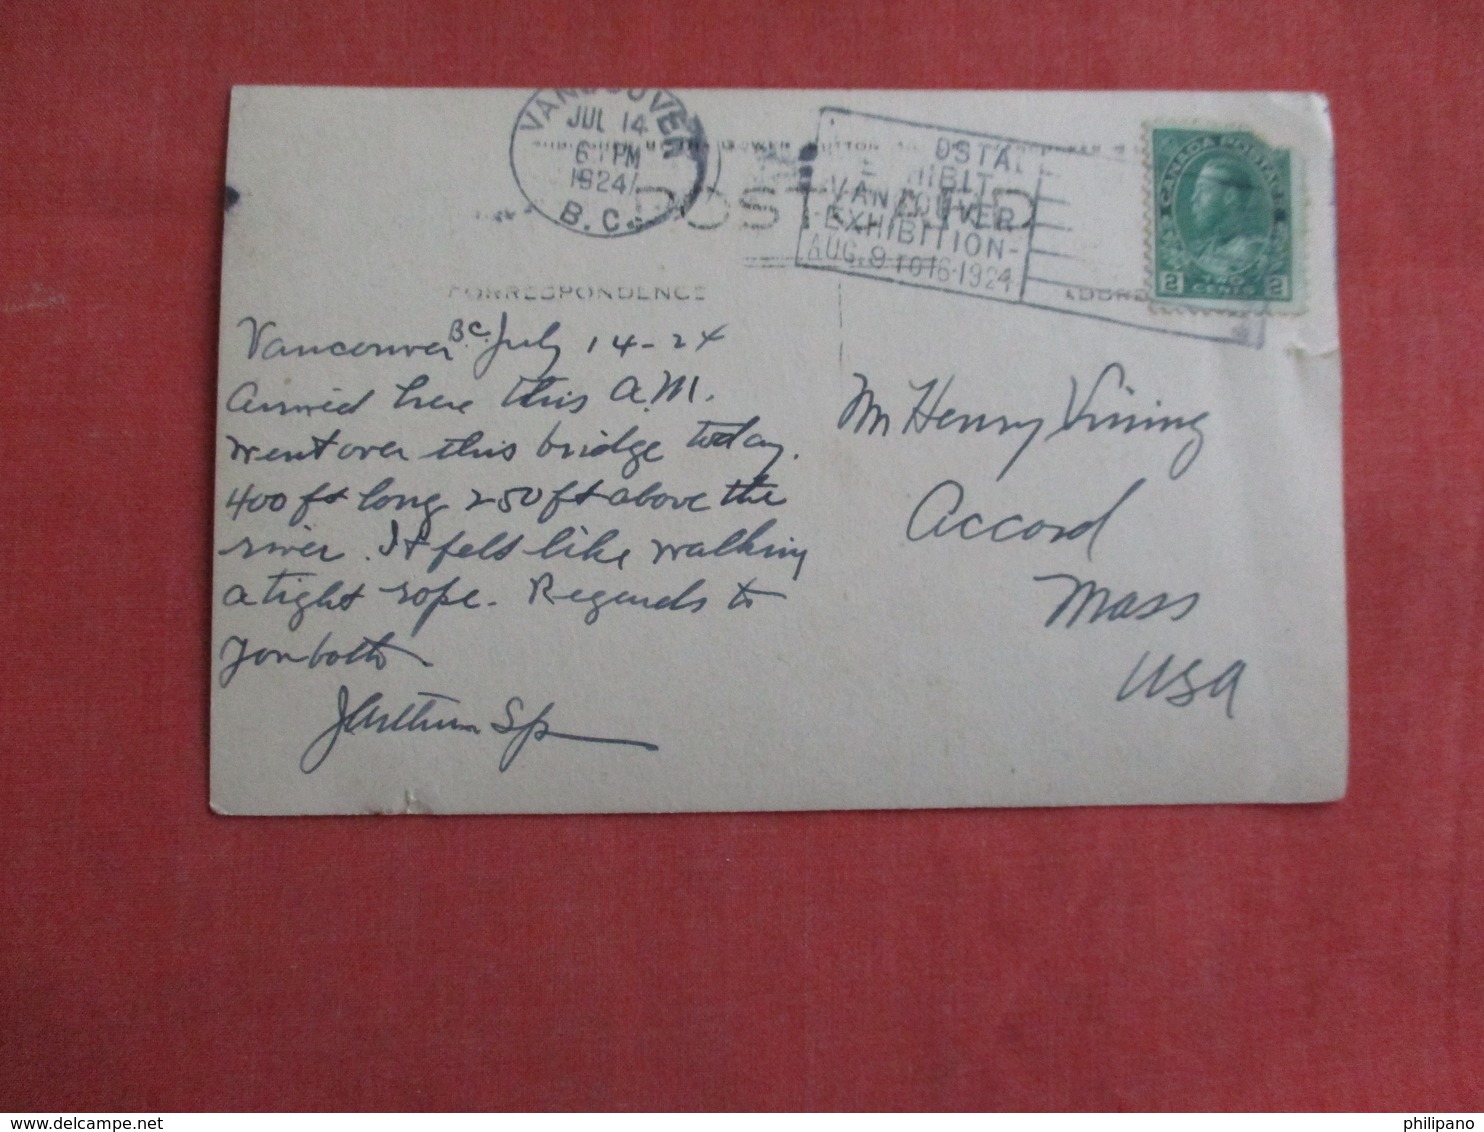 VANCOUVER
JUL 14
6 PM
1924
B.C.
POSTAL
EXHIBIT
VANCOUVER
EXHIBITION-
AUG. 9 TO 16-1924
CANADA POSTAGE
2 CENTS 2
POST CARD
CORRESPONDENCE
Vancouver B.C. July 14-24
Arrived here this A.M.
went over this bridge today.
400 ft long 250 ft above the
river. It felt like walking
a tight rope. Regards to
you both.
J Arthur
Mr Henry Vining
Accord
Mass
USA
philipano